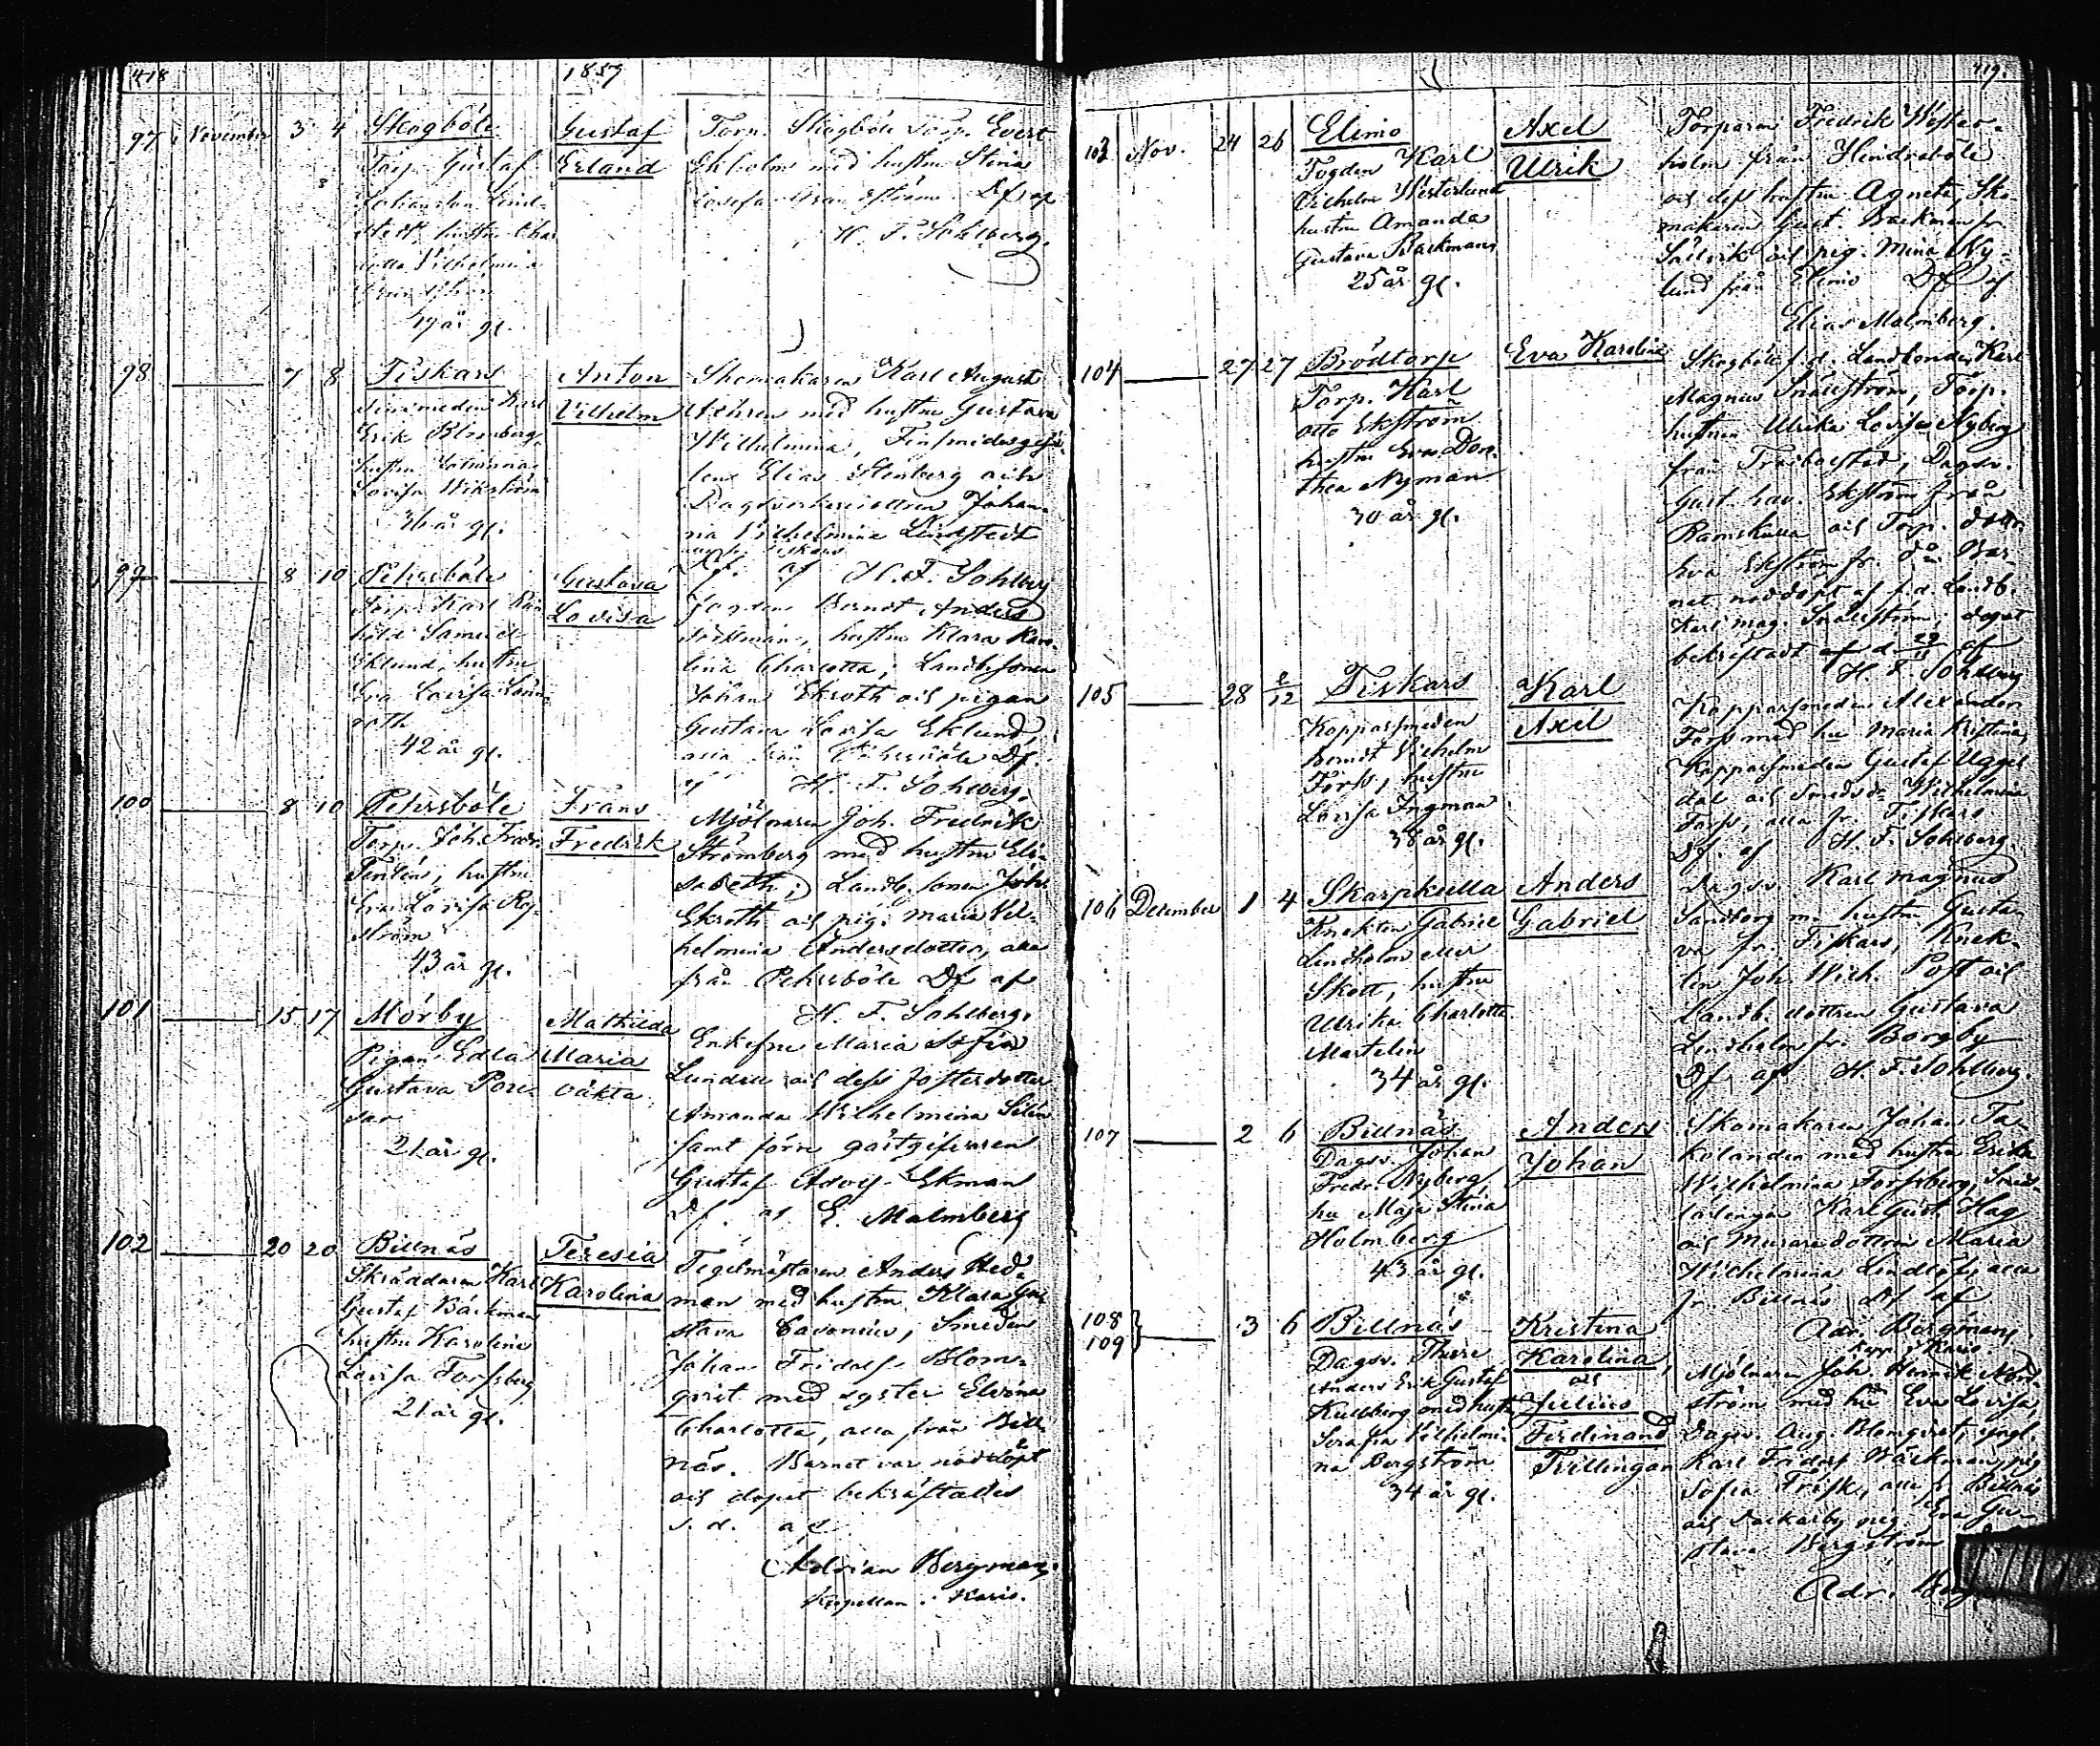 418
1859
97 November 3 4 Skogböle
Torp. Gustaf
Johansson Lind-
stedt hustru Char-
lotta Vilhelmina
49 år gl.
Gustaf
Erland
Torp. Skogböle Torp. Evert
Ekholm med hustru Stina
Df. af
H. F. Sohlberg.
98 7 8 Fiskars
Finsmeden Karl
Erik Blomberg,
hustru Johanna
Lovisa Wikström
36 år gl.
Anton
Vilhelm
Skomakaren Karl August
med hustru Gustava
Wilhelmina, Finsmidesgesäl-
len Elias Stenberg och
Dagsverkaredottren Johan-
na Vilhelmina Lindstedt
Df. af H. F. Sohlberg
99 8 10 Pehrsböle
Torp. Karl
Samuel
Eklund, hustru
Eva Lovisa Lönn-
roth
42 år gl.
Gustava
Lovisa
Fogden Berndt Anders
hustru Klara Karo-
lina Charlotta; Landb. sonen
Johan Ekroth och pigan
Gustava Lovisa Eklund,
alla från Pehrsböle Df.
af H. F. Sohlberg.
100 8 10 Pehrsböle
Torp. Joh. Fredr.
hustru
Eva Lovisa Ny-
ström
43 år gl.
Frans
Fredrik
Mjölnaren Joh. Fredrik
Strömberg med hustru Eli-
sabeth; Landb. sonen Joh.
Ekroth och pig. Maria Vil-
helmina Andersdotter, alla
från Pehrsböle Df af
H. F. Sohlberg.
101 15 17 Mörby
Pigan Edla
Gustava
21 år gl.
Mathilda
Maria
oäkta
Enkefru Maria Sofia
Lundell och dess fosterdotter
Amanda Wilhelmina
samt förre gästgifvaren
Gustaf Adolf Ekman
Df. af E. Malmberg
102 20 20 Billnäs
Skräddaren Karl
Gustaf Bäckman
hustru Karolina
Lovisa Forssberg
21 år gl.
Teresia
Karolina
Tegelmästaren Anders Hed-
man med hustru Klara Gu-
stava Savonius, Smeden
Johan Fridolf Blom-
qvist med syster Elvina
Charlotta, alla från Bill-
näs. Barnet var nöddöpt
och dopet bekräftades
s. d. af
Adrian Bergman.
Kapellan i Karis.
419.
103 Nov. 24 26 Elimo
Fogden Karl
Vilhelm Westerlund
hustru Amanda
Gustava Backman
25 år gl.
Axel
Ulrik
Torparen Fredrik Wester-
holm från Hindrsböle
och dess hustru Agneta, Sko-
makaren Gust. Backman fr.
och pig. Mina Ny-
lund från Elimo Df af
Elias Malmberg.
104 27 27 Brödtorp
Torp. Karl
Otto Ekström
hustru Eva Doro-
thea Nyman
30 år gl.
Eva Karolina
Skogböle f. d. Landbonden Karl
Magnus Snällström, Torp.
hustrun Ulrika Lovisa Nyberg
från Dagsv.
Gust. Ekström från
Ramskulla och Torp. dottr.
Eva Ekström fr. d:o Bar-
net nöddöpt af f. d. Landb.
Karl Mag. Snällström; dopet
bekräftadt d. 29/11 af
H. F. Sohlberg
105 28 2/12 Fiskars
Kopparsmeden
Berndt Vilhelm
Forss, hustru
Lovisa Ingman
38 år gl.
Karl
Axel
Kopparsmeden Alexander
Forss med hu Maria Kristina,
Kopparsmeden Gustaf Uggel-
dal och Smedsd:n Wilhelmina
Forss, alla fr. Fiskars
Df. af H. F. Sohlberg.
106 December 1 4 Skarpkulla
Knekten Gabriel
Lindholm eller
Skott, hustru
Ulrika Charlotta
Martelin
34 år gl.
Anders
Gabriel
Dagsv. Karl Magnus
Sandborg m. hustru Gusta-
va fr. Fiskars, Knek-
ten Joh. Wilh. Post och
Landb. dottren Gustava
Lindholm fr. Borgby
Df af H. F. Sohlberg.
107 2 6 Billnäs
Dagsv. Johan
Fredr. Nyberg,
hu Maja Stina
Holmberg
43 år gl.
Anders
Johan
Skomakaren Johan Ta-
kolander med hustru Erika
Wilhelmina Forssberg, Smed-
lärlingen Karl Gust. Hag
och Muraredottren Maria
Wilhelmina Lindlöf, alla
fr. Billnäs Df af
Adr. Bergman,
Kapp. i Karis.
108
109 3 6 Billnäs
Dagsv. Thure
Anders Erik Gustaf
Kullberg med hustru
Serafia Vilhelmi-
na Bergström
34 år gl.
Kristina
Karolina,
och
Julius
Ferdinand
Tvillingar
Mjölnaren Joh. Henrik Nord-
ström med hu Eva Lovisa,
Dagsv. Aug. Blomqvist, yngl.
Karl Fridolf Wäckman, pig
Sofia Frisk, alla fr. Billnäs
och pig. Eva Gu-
stava Bergström
Adr. Berg